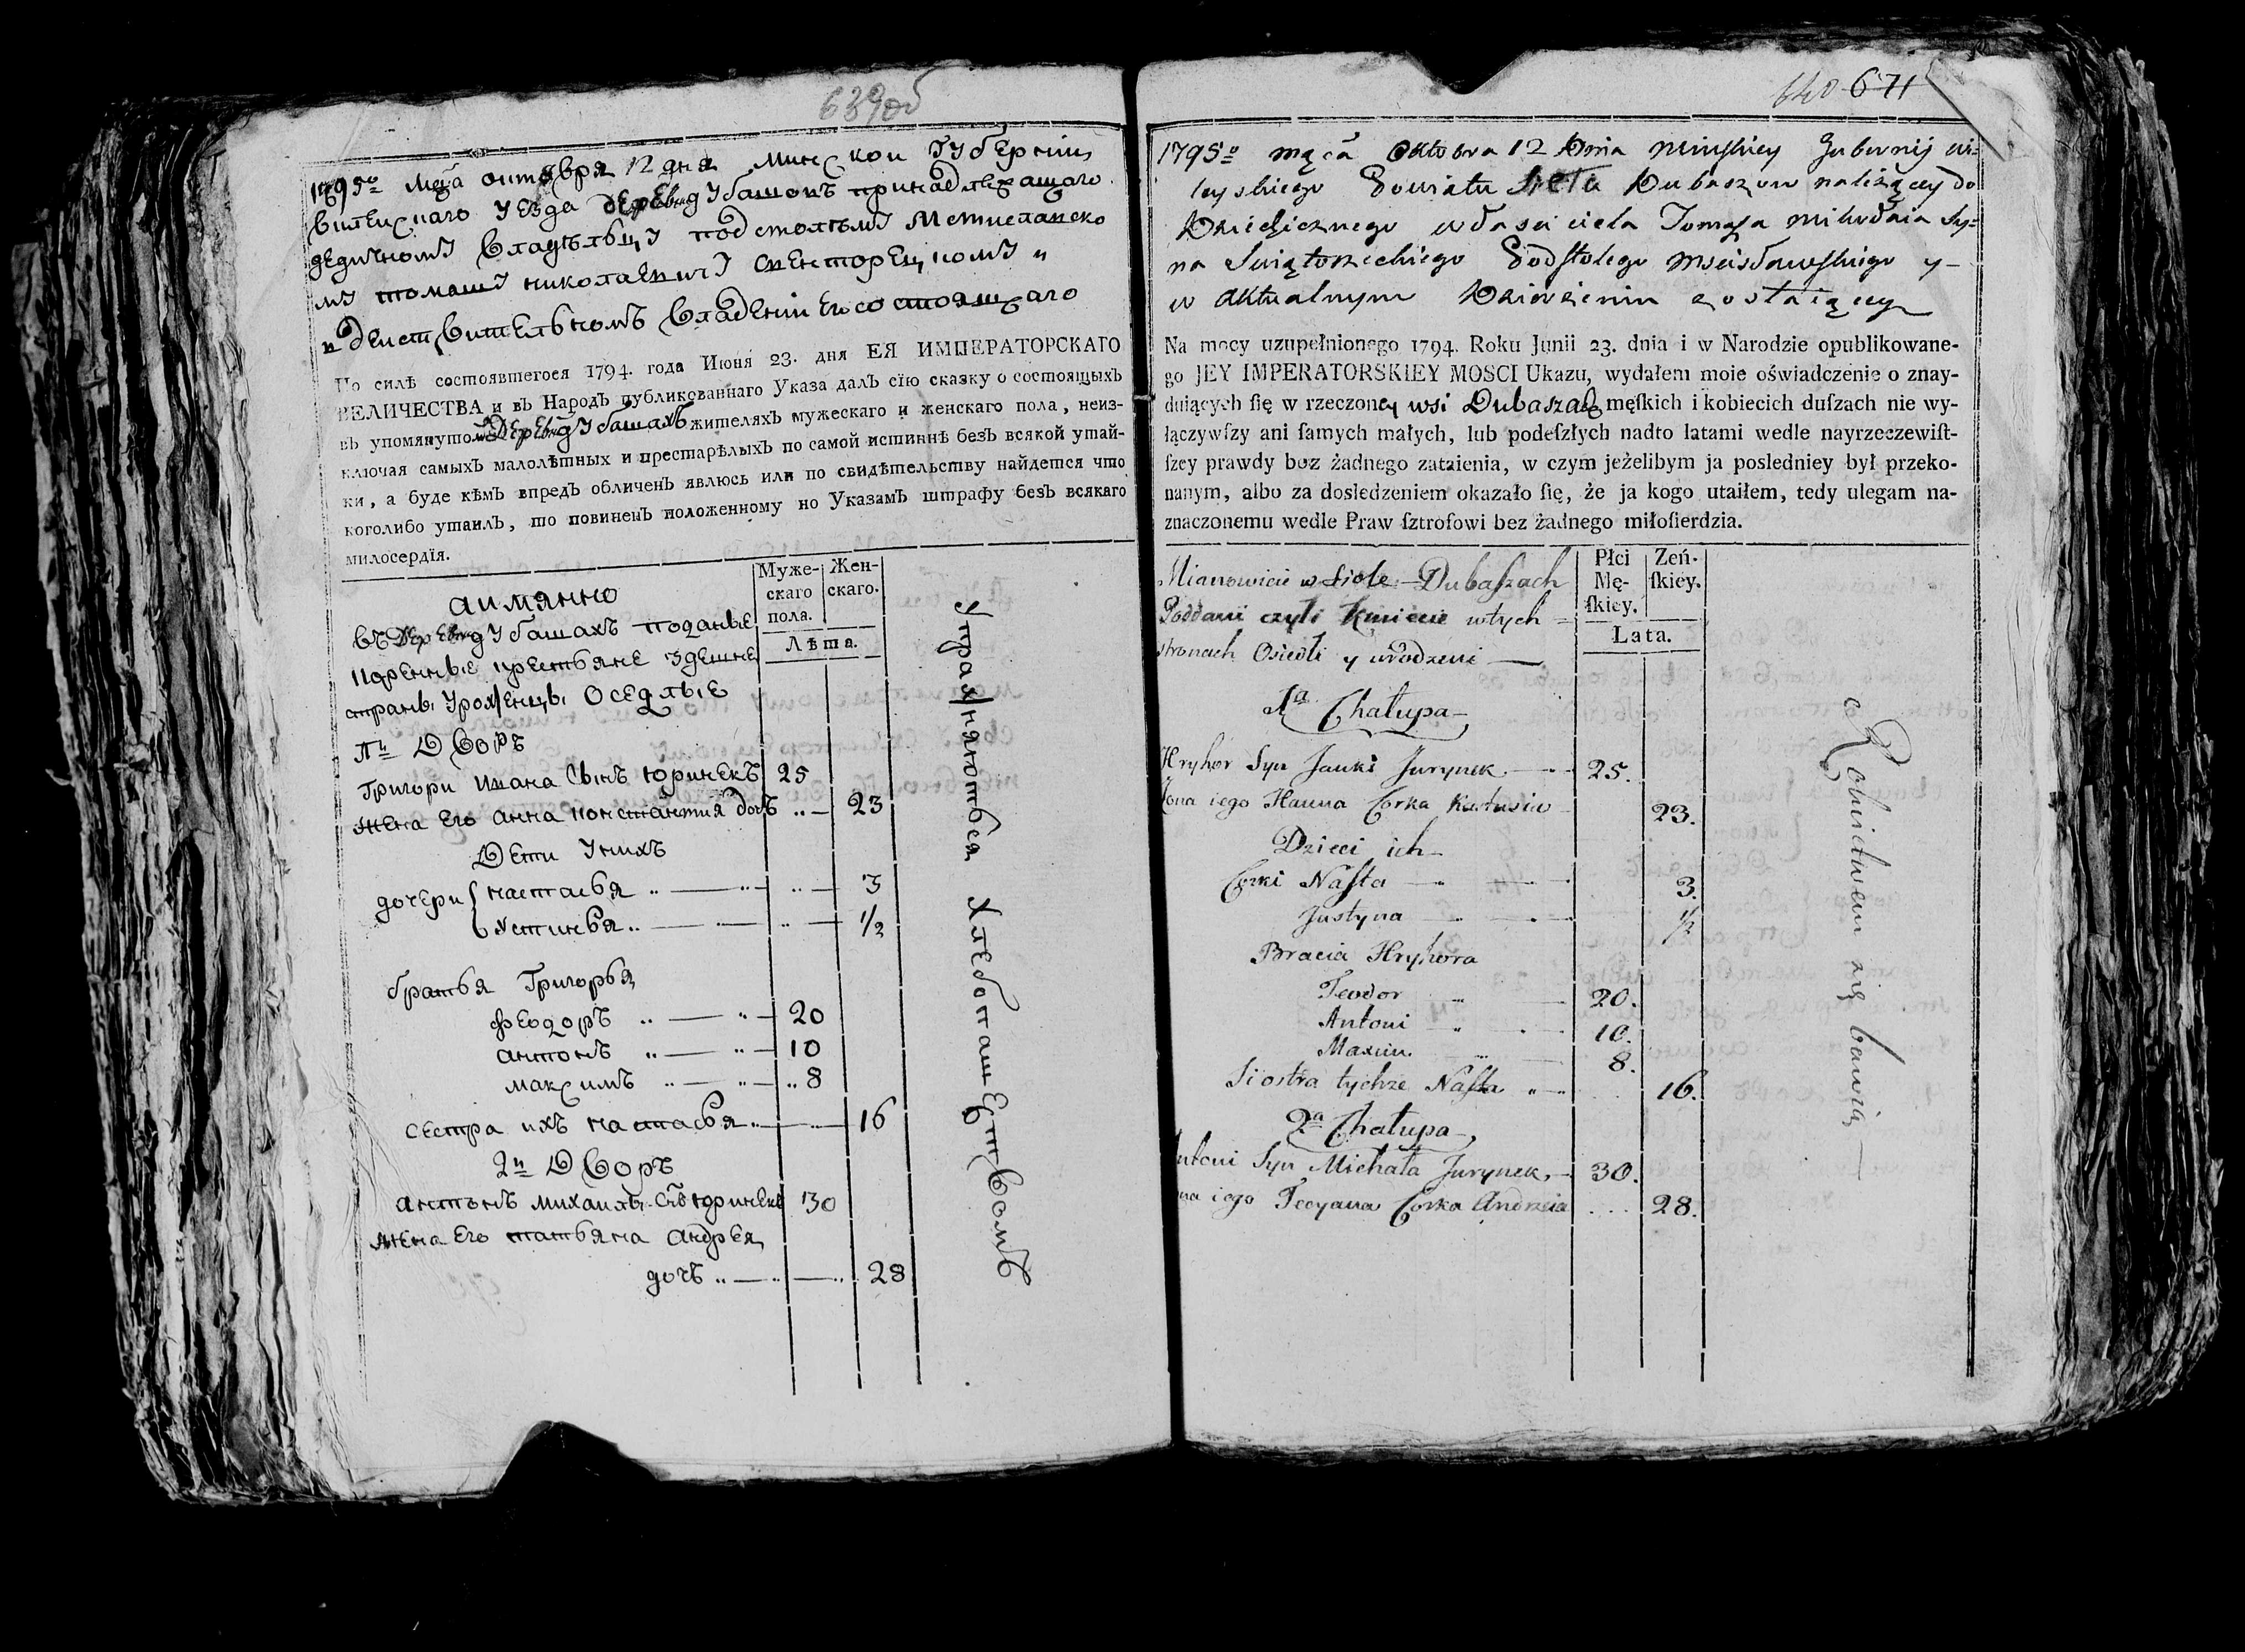 639об
1795го мца октября 12 дня минской губернии
вилейскаго уезда деревни дубашокъ принадлежащаго
дедичному владельцу подстолему Мстиславско
му томашу николаевичу свенторецкому и
в действительномъ владении его состоящаго
По силѣ состоявшегося 1794. года Июня 23. дня ЕЯ ИМПЕРАТОРСКАГО
ВЕЛИЧЕСТВА и въ Народъ публикованнаго Указа далъ сїю сказку о состоящыхъ
въ упомянутом деревни дубашахъ жителяхъ мужескаго и женскаго пола, неиз-
ключая самыхъ малолѣтныхъ и престарѣлыхъ по самой истиннѣ безъ всякой утай-
ки, а буде кѣмъ впредъ обличенъ явлюсь или по свидѣтельству найдется что
коголибо утаилъ, то повиненъ положенному по Указамъ штрафу безъ всякаго
милосердїя.
Муже-
скаго
пола.
Жен-
скаго.
Лѣта.
а имянно
въ деревни дубашахъ поданые
коренные крестьяне здешне
страны уроженцы оседлые
1й Дворъ
Григори ивана сынъ юринекъ 25
жена его анна константия дочъ .. — 23
Дети у нихъ
дочери настасья .. — .. — 3
устинья .. — .. — 1/2
братья Григорья
феодоръ .. — .. — 20
антонъ .. — .. — 10
максимъ .. — .. — .. 8
сестра ихъ настасья .. — .. — 16
2й Дворъ
антонъ михаилы сынъ юринекъ 30
жена его татьяна андрея
дочъ .. — .. — .. 28
упражняются хлебопашетвомъ
640 671
1795o mąca Oktobra 12 Dnia Minskiey Gubernij wi=
leyskiego Powiatu Sieła Dubaszow należącey do
Dziedzicznego własciciela Tomasza Mikołaia Sy=
na Swiętorzeckiego Podstolego Mscisławskiego y —
w aktualnym Dzierżeniu zostaiącey
Na mocy uzupełnionego 1794. Roku Junii 23. dnia i w Narodzie opublikowane-
go JEY IMPERATORSKIEY MOSCI Ukazu, wydałem moie oświadczenie o znay-
duiących ſię w rzeczoney wsi Dubaszach męſkich i kobiecich duſzach nie wy-
łączywſzy ani ſamych małych, lub podeſzłych nadto latami wedle nayrzeczewiſt-
ſzey prawdy bez żadnego zataienia, w czym jeżelibym ja posledniey był przeko-
nanym, albo za dosledzeniem okazało ſię, że ja kogo utaiłem, tedy ulegam na-
znaczonemu wedle Praw ſztrofowi bez żadnego miłoſierdzia.
Płci
Mę-
ſkiey.
Zeń-
ſkiey.
Lata.
Mianowicie w siole Dubaſzach
Poddani czyli Kmiecie w tych =
stronach Osiedli y urodzeni —
1a Chałupa —
Hryhor Syn Janki Jurynek — 25.
Żona iego Hanna Corka Kastusia 23.
Dzieci ich —
Corki Naſta — 3.
Justyna — 1/2
Bracia Hryhora
Teodor — 20.
Antoni — 10.
Maxim — 8.
Siostra tychze Naſta .. — 16.
2a Chałupa —
Antoni Syn Michała Jurynek — 30.
Żona iego Tecyana Corka Andrzeia ... 28.
Rolnictwem się bawią —